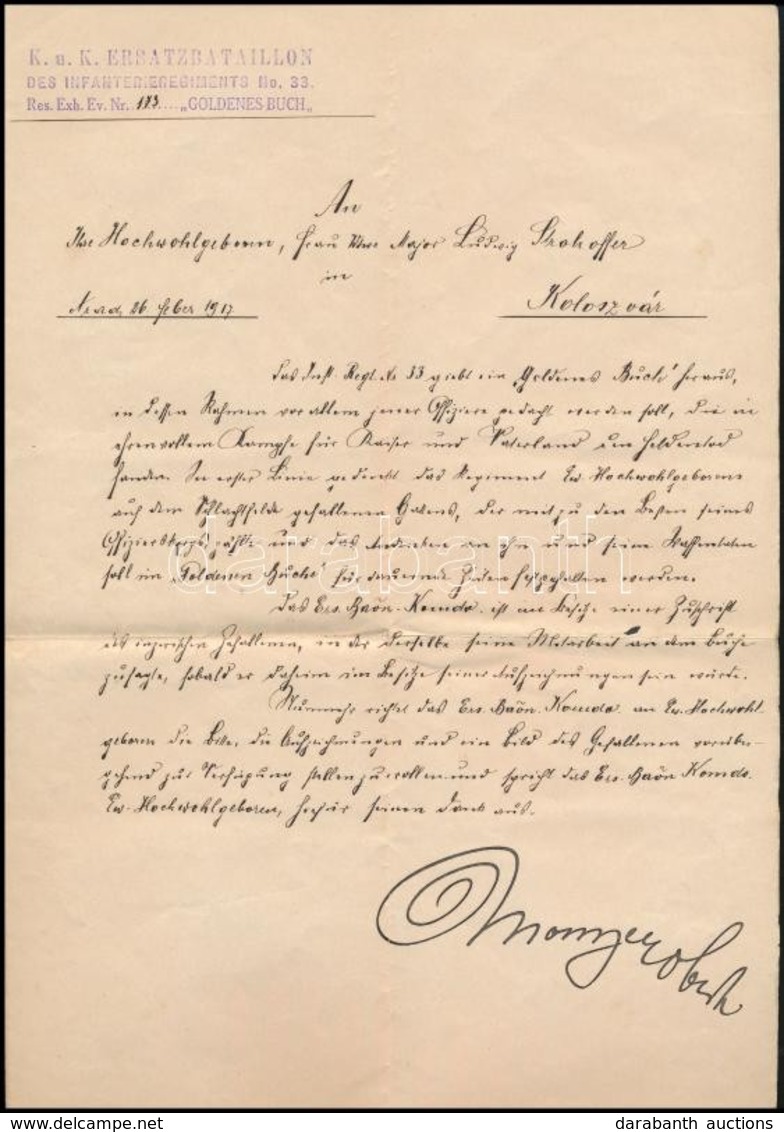 K. u. K. ERSATZBATAILLON
DES INFANTERIEREGIMENTS No. 33.
Res. Exh. Ev. Nr. 173 „GOLDENES BUCH„
An
Ihre Hochwohlgeboren, Frau Wwe Major Ludwig Strohoffer
in
Arad, 26 feber 1917
Koloszvár
Das Inft. Regt. No 33 giebt ein „Goldenes Buch" heraus,
in dessen Rahmen vor allem jener Offiziere gedacht werden soll, die in
ehrenvollem Kampfe für Kaiser und Vaterland den Heldentod
fanden. In erster Linie gedenkt das Regiment Ew. Hochwohlgeborens
auf dem Schlachtfelde gefallenen Gatten, der mit zu den Besten seines
Offizierskorps zählte und das Andenken an ihn und seine Waffentaten
soll im „Goldenen Buche" für dauernde Zeiten festgehalten werden.
Das Ers. Baōn. Komdo. ist im Besitze einer Zuschrift
des Gefallenen, in der derselbe seine Mitarbeit an dem Buche
zusagte, sobald er daheim im Besitze seiner Aufzeichnungen sein würde.
Nunmehr richtet das Ers. Baōn. Komdo. an Ew. Hochwohl-
geboren die Bitte, die Aufzeichnungen und ein Bild des Gefallenen vorüber-
gehend zur Verfügung stellen zu wollen und spricht das Ers. Baōn Komdo.
Ew. Hochwohlgeboren, hiefür seinen Dank aus.
darabanth
https://www.delcampe.net
darabanth auctions